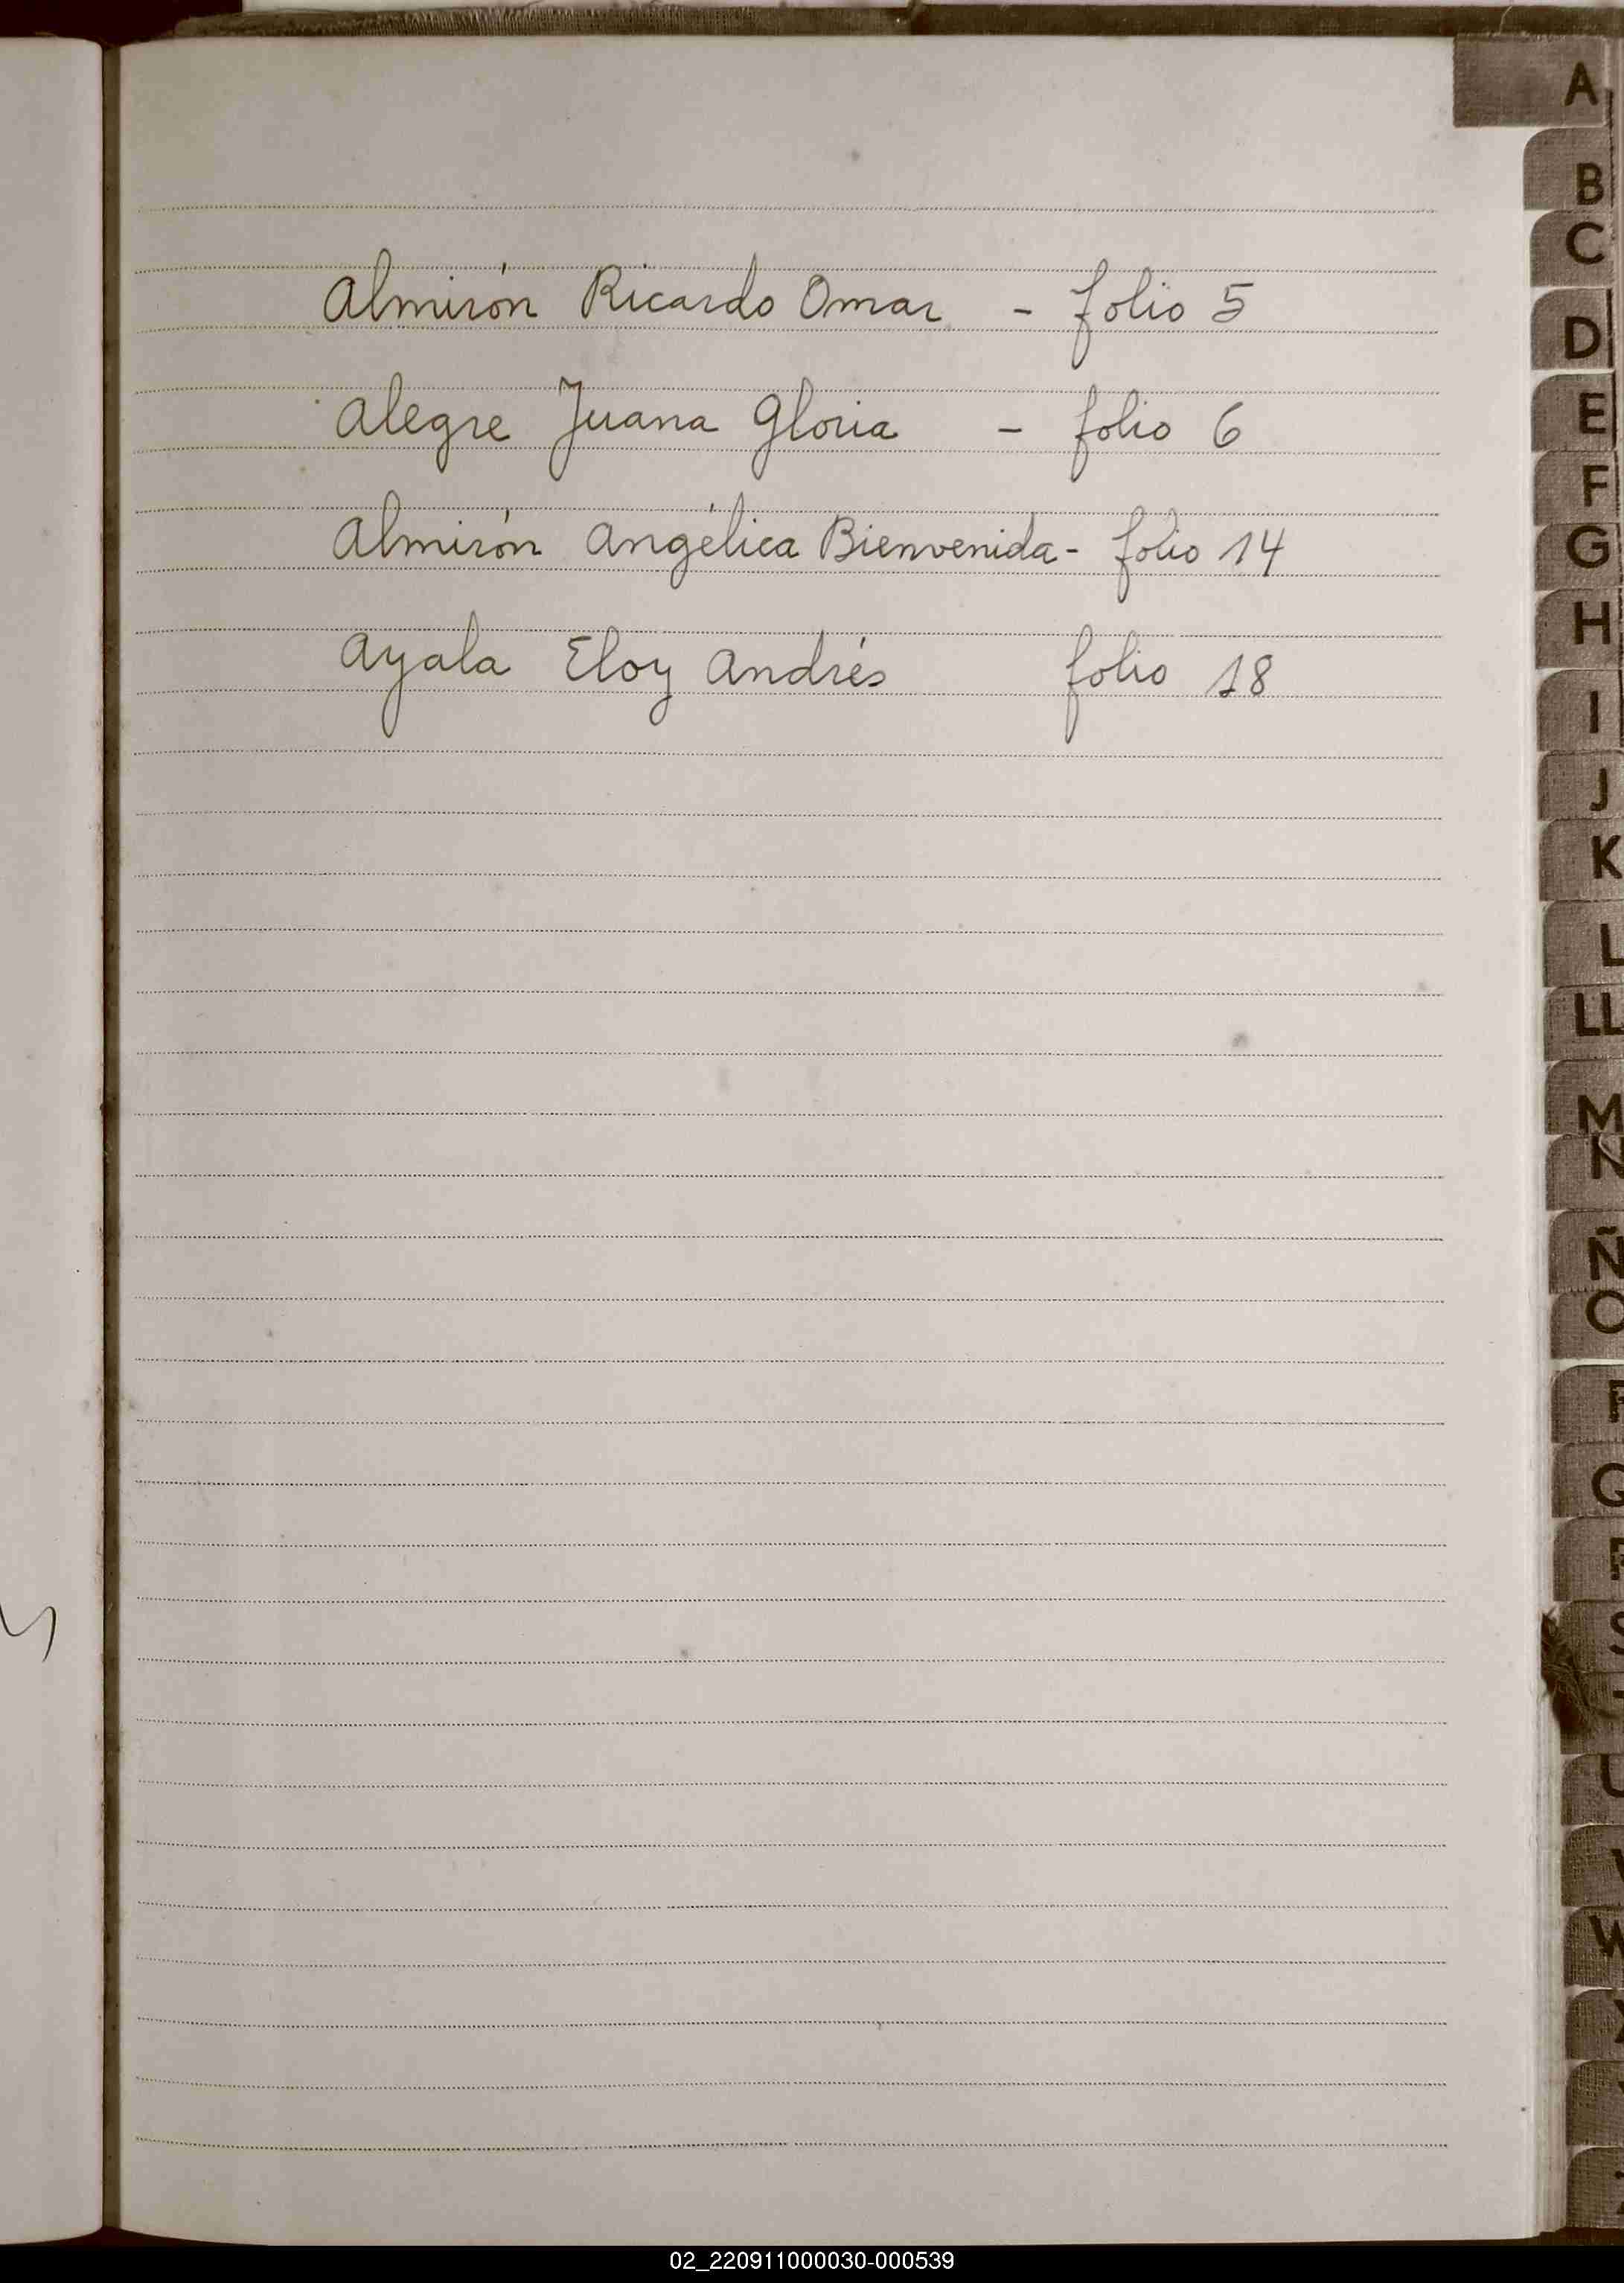 Almirón Ricardo Omar - folio 5
Alegre Juana Gloria - folio 6
Almirón Angélica Bienvenida - folio 14
Ayala Eloy Andrés folio 18
A
B
C
D
E
F
G
H
I
J
K
L
LL
M
N
Ñ
O
P
Q
R
S
U
W
02_220911000030-000539